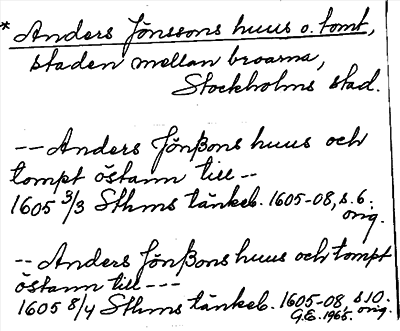 * Anders Jönssons huus o. tomt,
staden mellan broarna,
Stockholms stad.
-- Anders Jönßons huus och
tompt östann till --
1605 3/3 Sthms tänkeb. 1605-08, s. 6.
orig.
-- Anders Jönßons huus och tompt
östann till ---
1605 8/4 Sthms tänkeb. 1605-08, s 10.
G.E. 1965. orig.